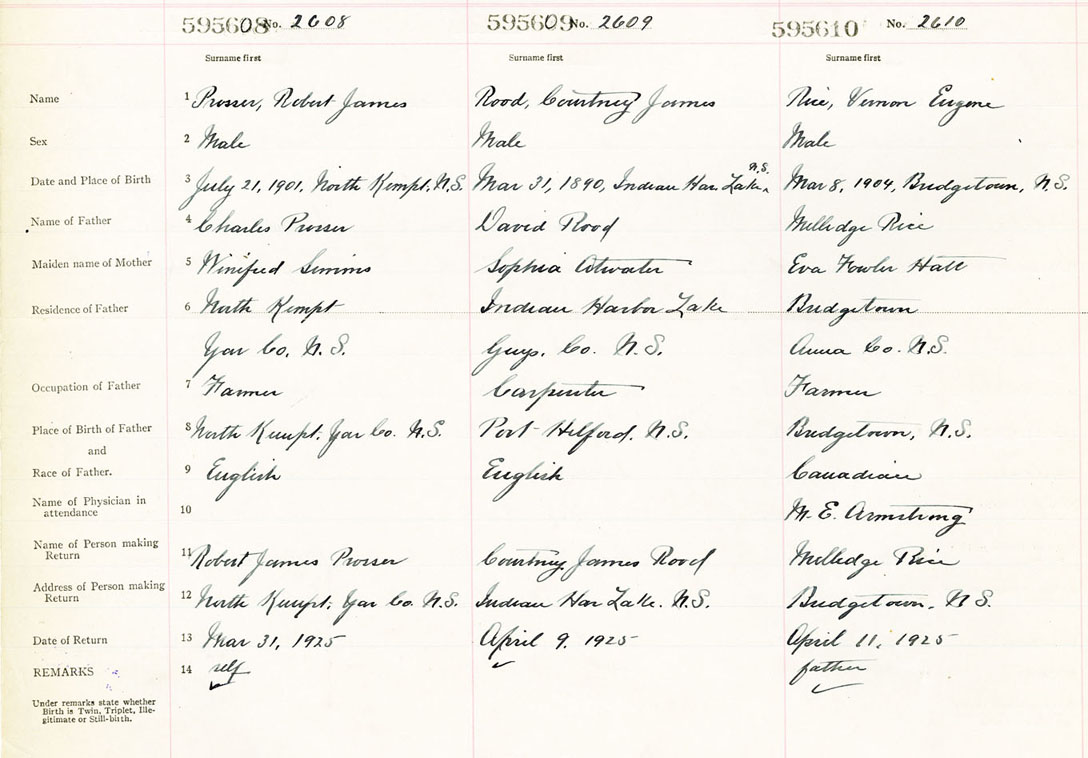 595608 No. 2608 595609 No. 2609 595610 No. 2610
Surname first Surname first Surname first
Name 1 Prosser, Robert James Rood, Courtney James Rice, Vernon Eugene
Sex 2 Male Male Male
N.S.
Date and Place of Birth 3 July 21, 1901, North Kempt, N.S. Mar 31, 1890, Indian Har Lake, Mar 8, 1904, Bridgetown, N.S.
Name of Father 4 Charles Prosser David Rood Milledge Rice
Maiden name of Mother 5 Winifred Simms Sophia Atwater Eva Fowler Hall
Residence of Father 6 North Kempt Indian Harbor Lake Bridgetown
Yar Co. N.S. Guys. Co. N.S. Anna Co. N.S.
Occupation of Father 7 Farmer Carpenter Farmer
Place of Birth of Father 8 North Kempt, Yar Co. N.S. Port Hilford, N.S. Bridgetown, N.S.
and
Race of Father. 9 English English Canadian
Name of Physician in
attendance 10 M. E. Armstrong
Name of Person making
Return 11 Robert James Prosser Courtney James Rood Milledge Rice
Address of Person making
Return 12 North Kempt, Yar Co. N.S. Indian Har Lake. N.S. Bridgetown, N.S.
Date of Return 13 Mar 31, 1925 April 9, 1925 April 11, 1925
REMARKS 14 self father
Under remarks state whether
Birth is Twin, Triplet, Ille-
gitimate or Still-birth.